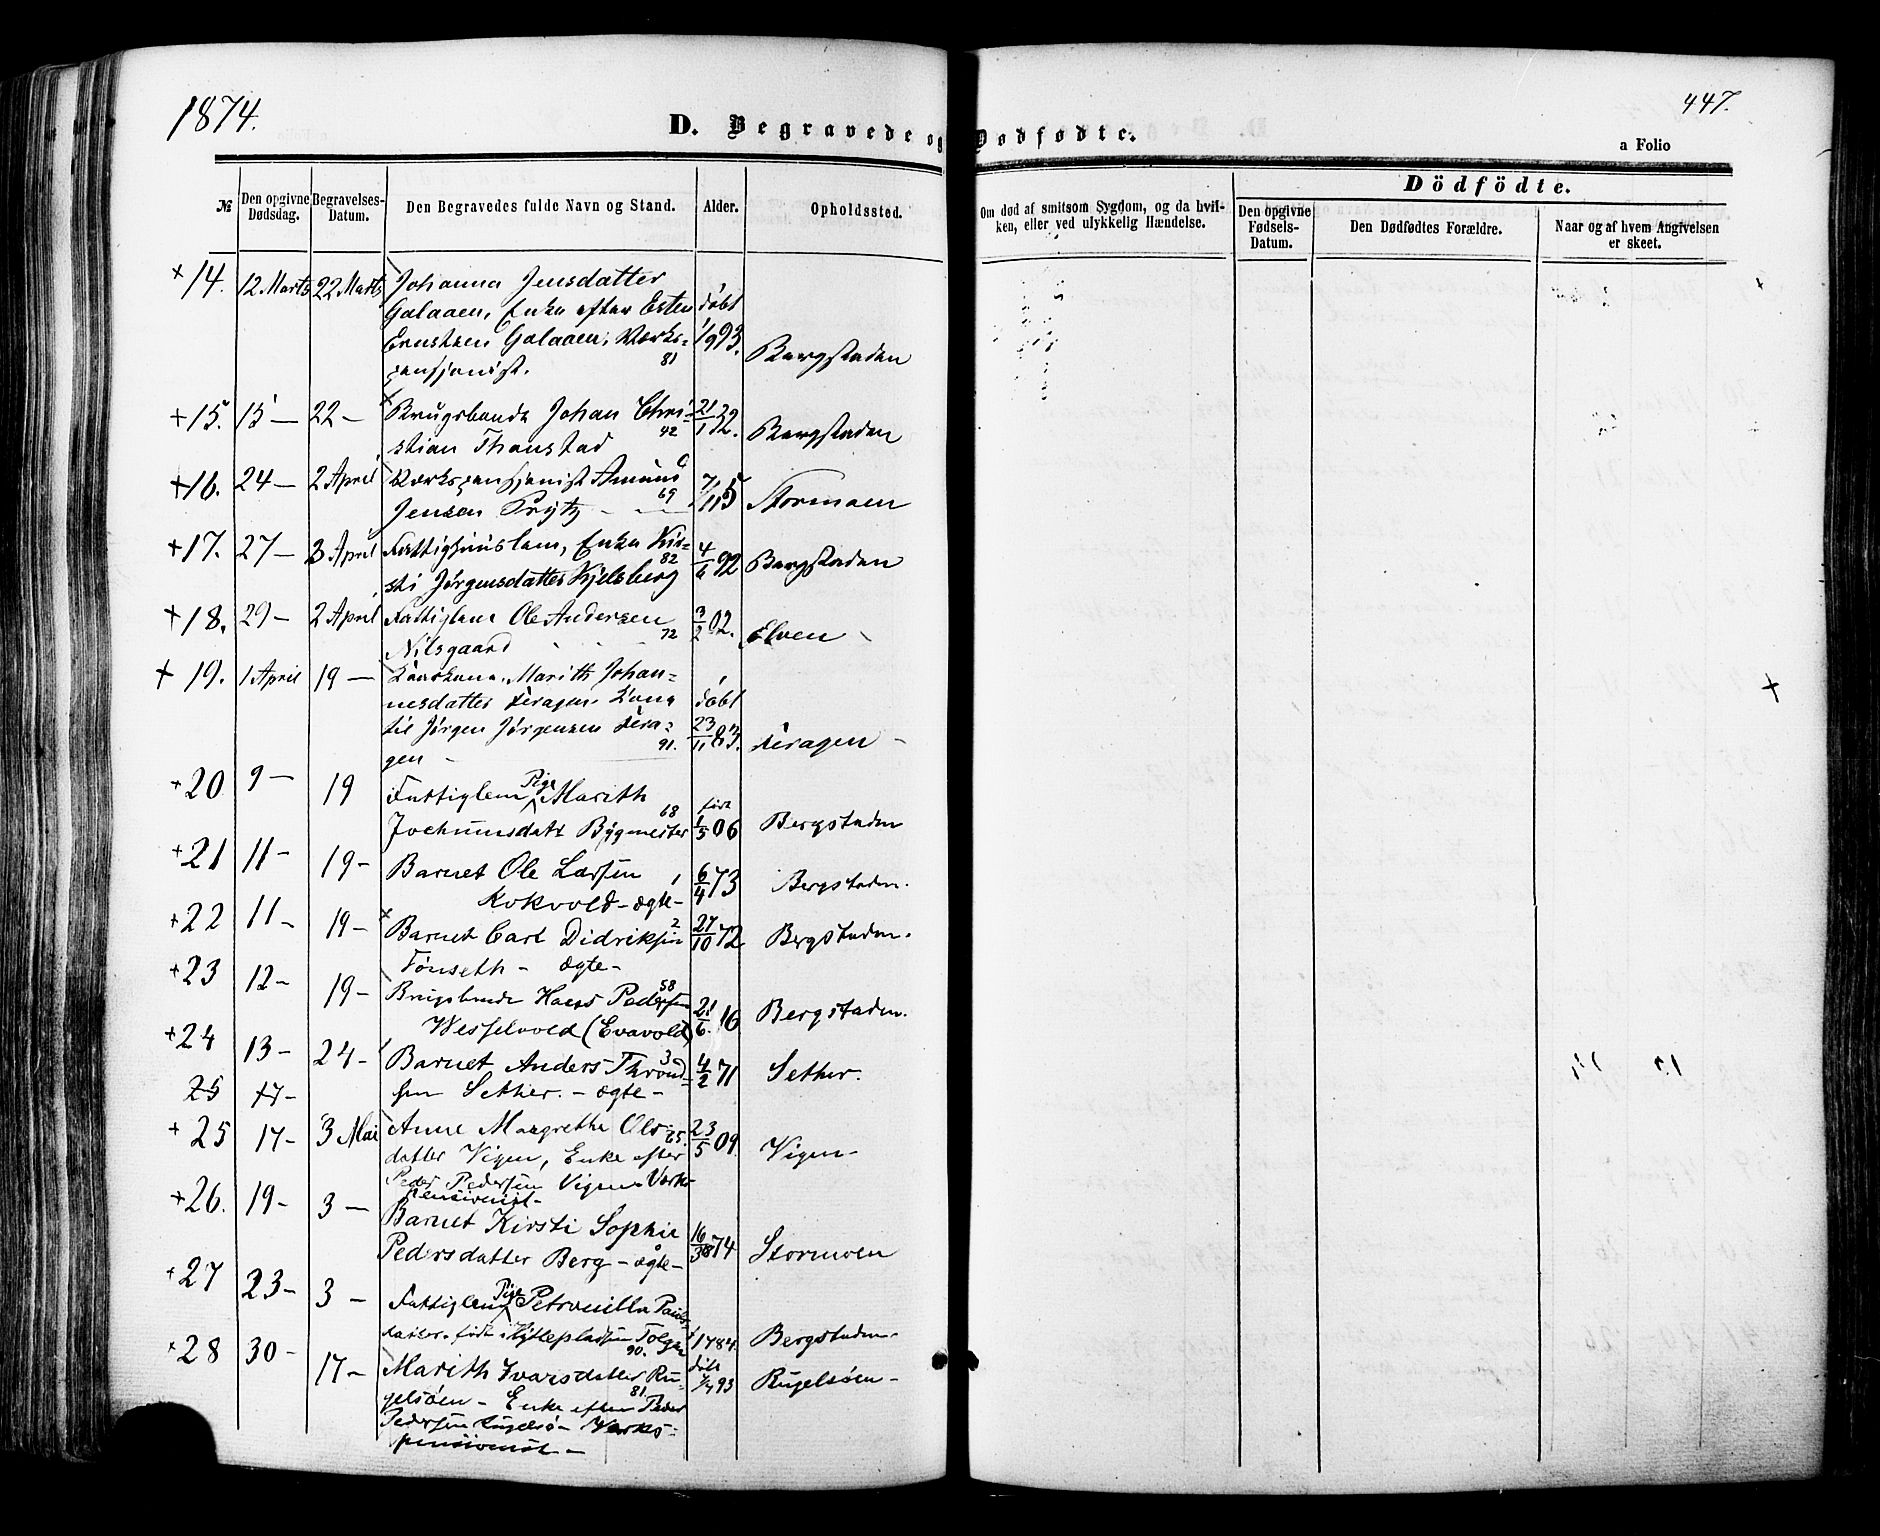 1874.
447.
D. Begravede og Dødfødte.
a Folio
№
Den opgivne Dødsdag.
Begravelses-Datum.
Den Begravedes fulde Navn og Stand.
Alder.
Opholdssted.
Om død af smitsom Sygdom, og da hvil-
ken, eller ved ulykkelig Hændelse.
Dödfödte.
Den opgivne Fødsels-Datum.
Den Dødfødtes Forældre.
Naar og af hvem Angivelsen
er skeet.
+ 14. 12 Marts 22 Marts Johanna Jensdatter
Galaaen, Enke efter Esten døbt
Ernstsen Galaaen, Værks- 1/9 93.
pensjonist. 81 Bergstaden
+ 15. 15 — 22 — Brugsbonde Johan Chri- 21/1 32.
stian Thonstad 42 Bergstaden
+ 16. 24 — 2 April Værkspensjonist Amund
Jensen Prytz — 69 7/11 5 Stormoen
+ 17. 27 — 3 April Fattighuuslem, Enke Kir-
sti Jørgensdatter Kjelsberg 82 4/6 92 Bergstaden
+ 18. 29 — 2 April Fattiglem Ole Andersen
Nilsgaard 72 3/2 02. Elven —
+ 19. 1 April 19 — Kaarkone Marith Johan-
nesdatter Feragen. Kone døbt
til Jørgen Jørgensen Fera- 23/11 83.
gen — 91. Feragen —
+ 20 9 — 19 Fattiglem Pige Marith født
Jochumsdatr Bygmester 68 1/5 06 Bergstaden
+ 21 11 — 19 — Barnet Ole Larsen 1 6/4 73 Bergstaden.
Kokvold — ægte —
+ 22 11 — 19 — Barnet Carl Didriksen 2 27/10 72 Bergstaden.
Tønseth — ægte —
+ 23 12 — 19 — Brugsbonde Hans Pedersen 58
Wesselvold (Evavold) 21/6. 16 Bergstaden.
+ 24 13 — 24 — Barnet Anders Thrond- 3 4/2 71 Sether.
25 17 — sen Sether. — ægte —
+ 25 17 — 3 Mai Anne Margrethe Ols- 65. 23/5 09. Vigen —
datter Vigen, Enke efter
Peder Pedersen Vigen Værks-
pensionist —
+ 26. 19 — 3 — Barnet Kirsti Sophie
Pedersdatter Berg — ægte — 16/3 74 Stormoen
+ 27 23 — 3 — Fattiglem Pige Petronilla Pauls-
datter. født i Hyttepladsen Tolgen 90. 1784. Bergstaden.
+ 28 30 — 17 — Marith Ivarsdatter Ru- 81. døbt 1/4 93 Rugelsøen —
gelsøen — Enke efter Peder
Pedersen Rugelsø — Værks-
pensionist —
+